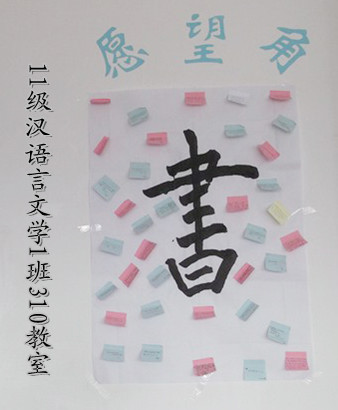 愿望角
11级汉语言文学1班310教室
書